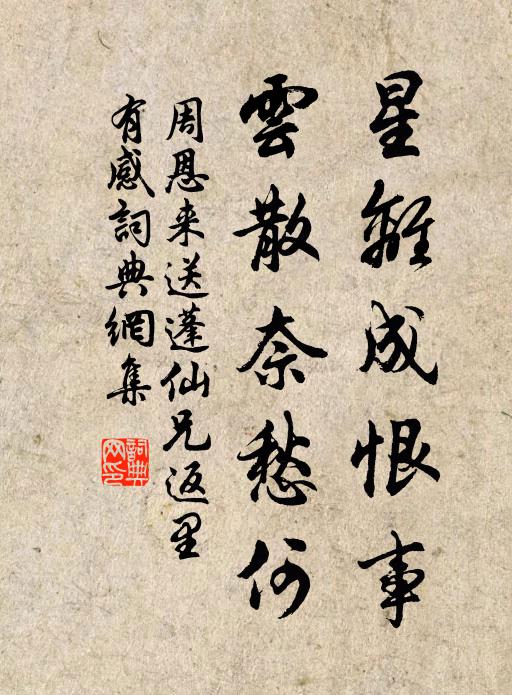 星離成恨事
雲散奈愁何
周恩来送蓬仙兄返里
有感詞典網集
詞典
网印